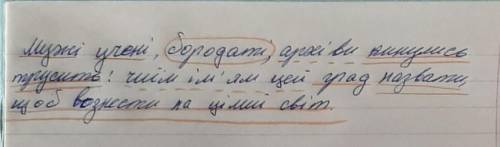 Мужі учені, бородаті, архіви кинулись
трусить: чиїм ім'ям цей град назвати,
щоб вознести на цілий світ.